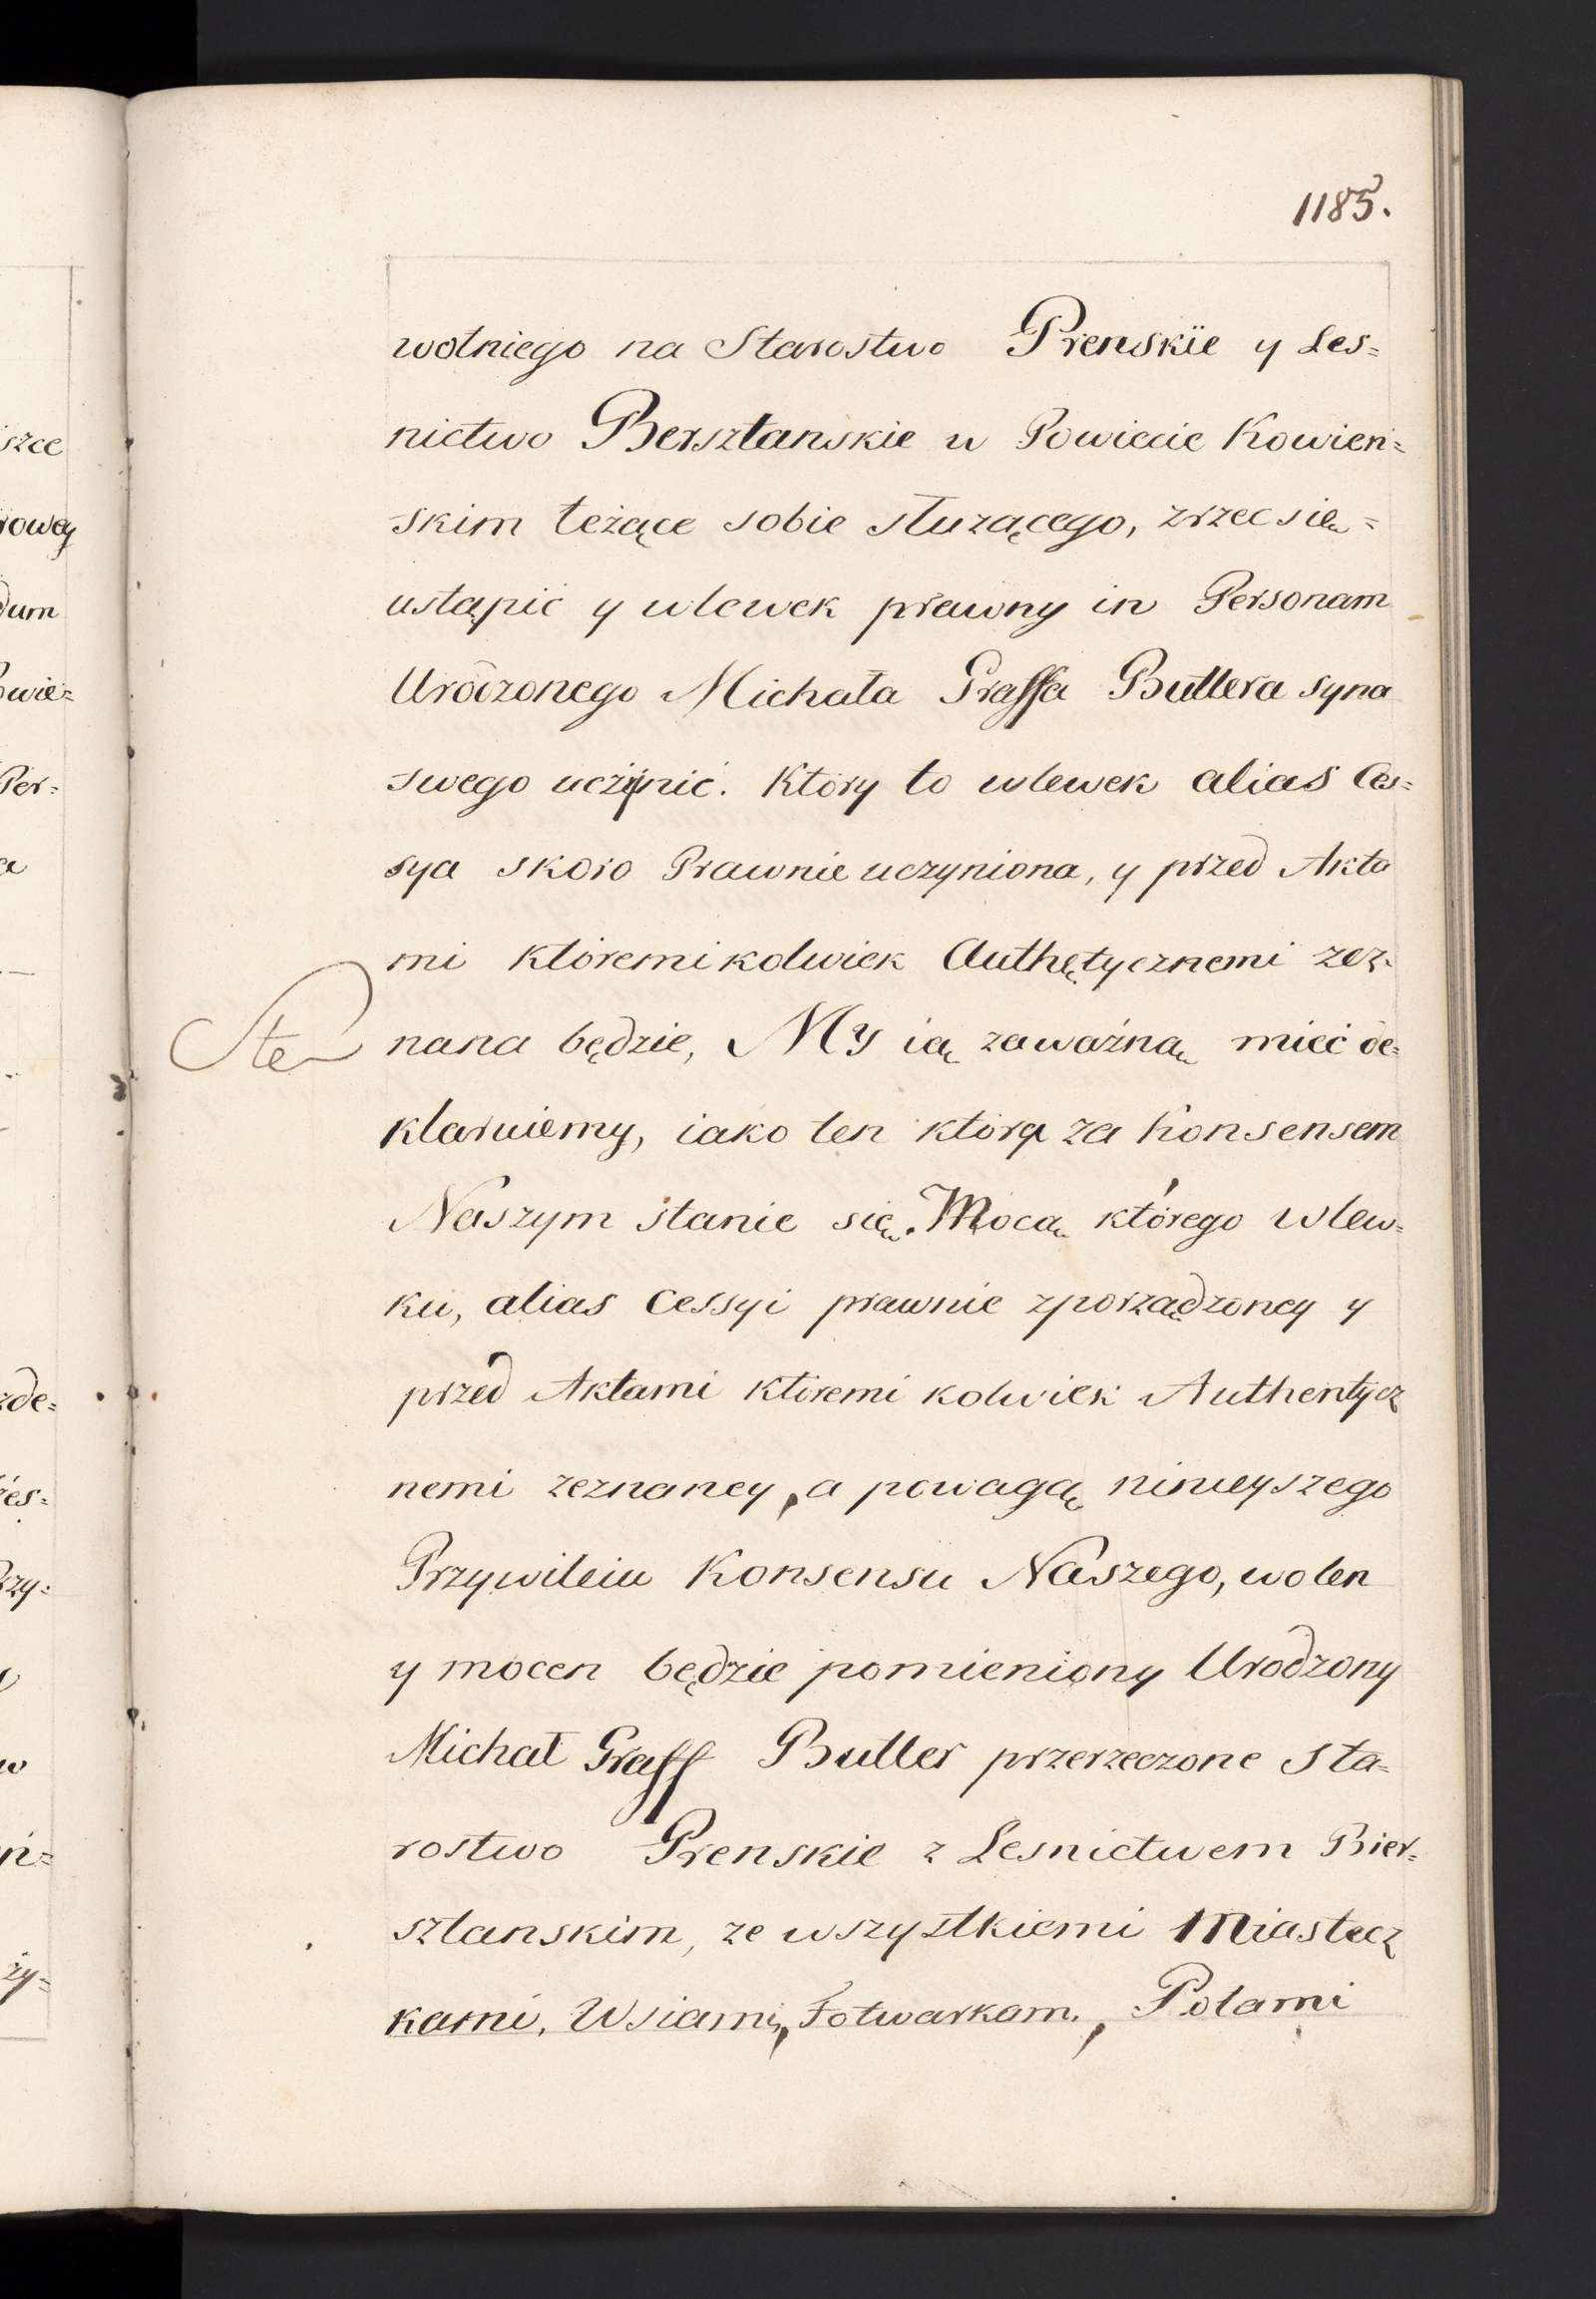 1185.
wolniego na Starostwo Prenskie y Les=
nictwo Bersztanskie w Powiecie Kowien=
skim leżące sobie służącego, zrzec się=
ustąpić y wlewek prawny in Personam
Urodzonego Michała Graffa Buttlera syna
swego uczynić. Ktory to wlewek alias Ces=
sya skoro Prawnie uczyniona, y przed Akta
mi ktoremikolwiek Authętycznemi zez-
nana będzie, My ią zaważną mieć de=
klaruiemy, iako ten ktora za Konsensem
Naszym stanie się. Mocą którego wlew=
ku, alias Cessyi prawnie zporządzoney y
przed Aktami ktoremi kolwiek Authentycz
nemi zeznaney, a powagą ninieyszego
Przywileiu Konsensu Naszego, wolen
y mocen będzie pomieniony Urodzony
Michał Graff Butler przerzeczone Sta=
rostwo Prenskie z Lesnictwem Bier=
sztanskim, ze wszystkiemi Miastecz
kami, Wsiami, Folwarkam, Polami
szce
rowey
dum
Per=
zde=